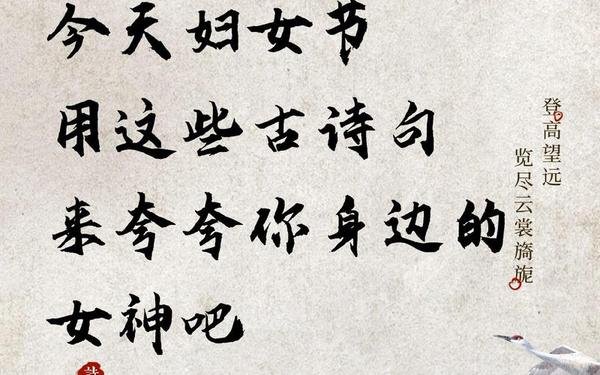 今天妇女节
用这些古诗句
来夸夸你身边的
女神吧
登高望远
览尽云裳旖旎